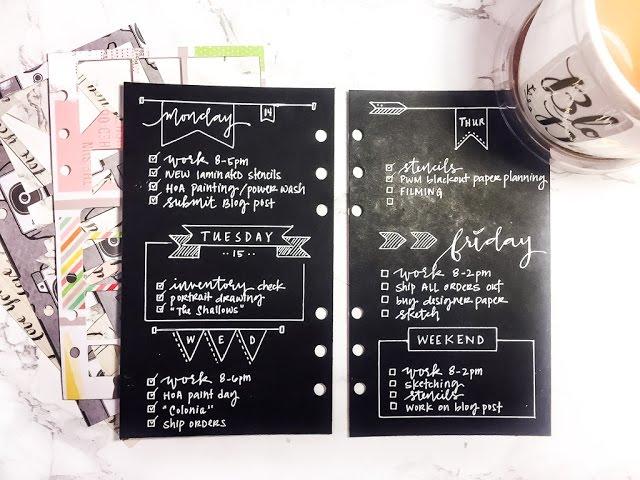 Monday
14
work 8-5pm
NEW laminate stencils
HOA Painting/power wash
submit Blog post
TUESDAY
15
inventory check
portrait drawing
"The Shallows"
WED
work 8-6pm
HOA paint day
"Colonia"
ship orders
THUR
stencils
PWM blackout paper planning
FILMING
friday
work 8-2pm
ship ALL ORDERS OUT
buy designer paper
sketch
WEEKEND
work 8-2pm
sketching
stencils
work on blog post